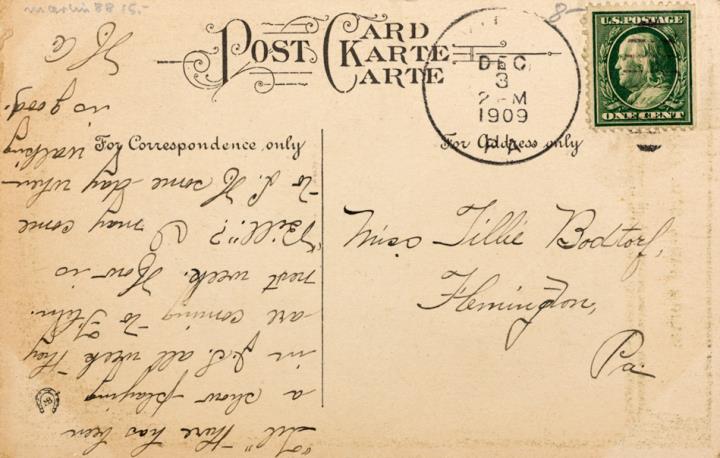 POST CARD
KARTE
CARTE
DEC
3
M
1909
PA
U.S. POSTAGE
ONE CENT
For Correspondence only
For Address only
Miss Tillie Bodtorf,
Flemington,
Pa.
"Till" there has been
a show playing
in J. S. all week they
are coming to Flem.
next week. How is
"Bill"? I may come
to L. H. some day when
walking
is good.